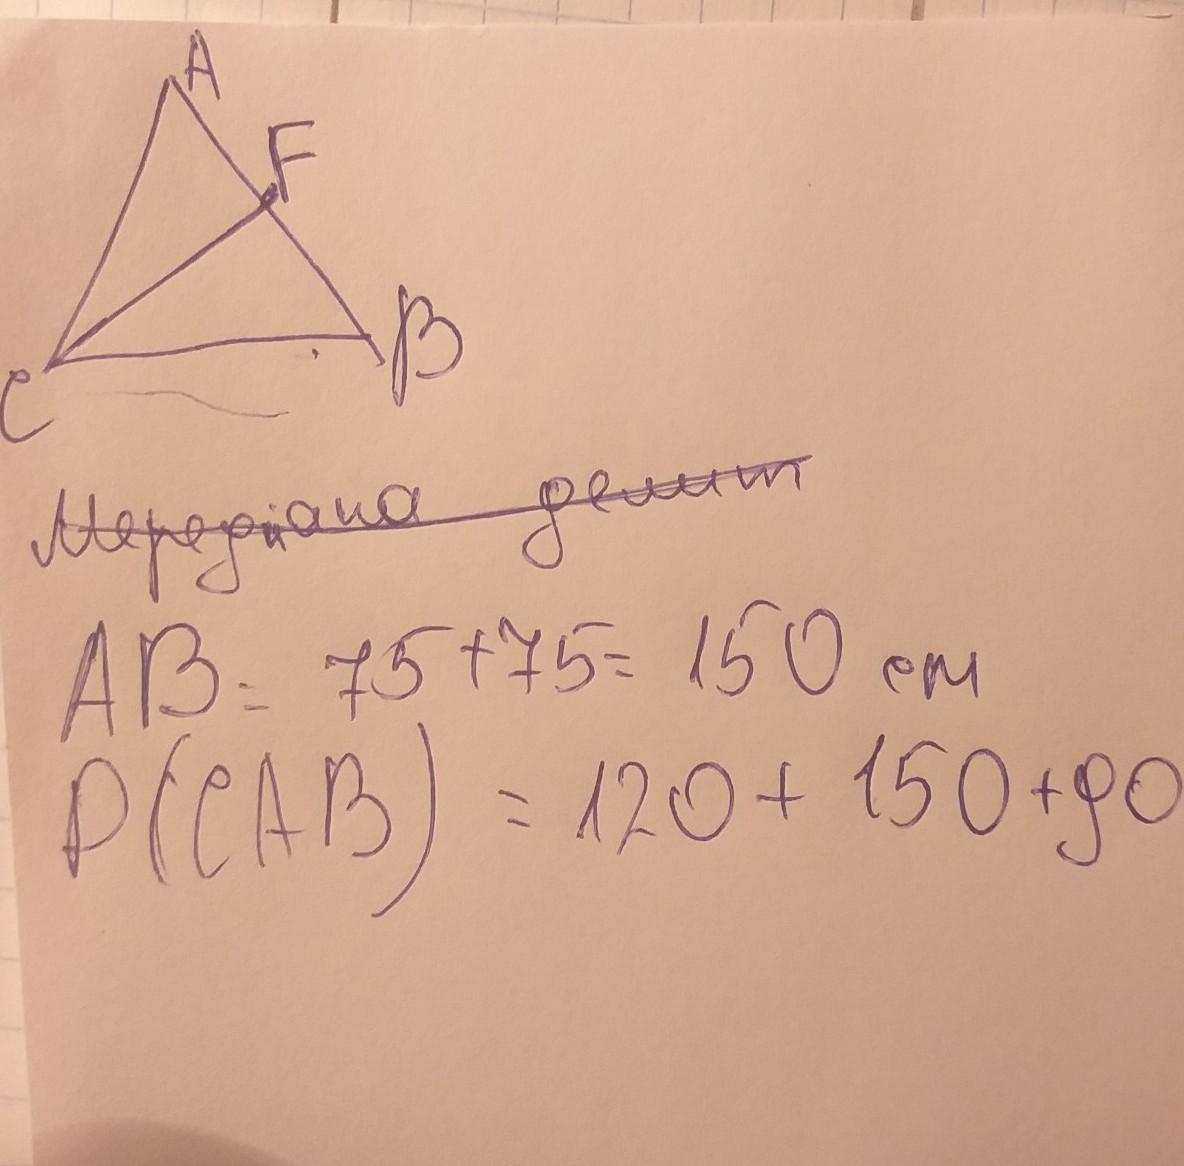 A
F
B
C
Мередиана делит
AB = 75+75= 150 см
P(CAB) = 120 + 150+90